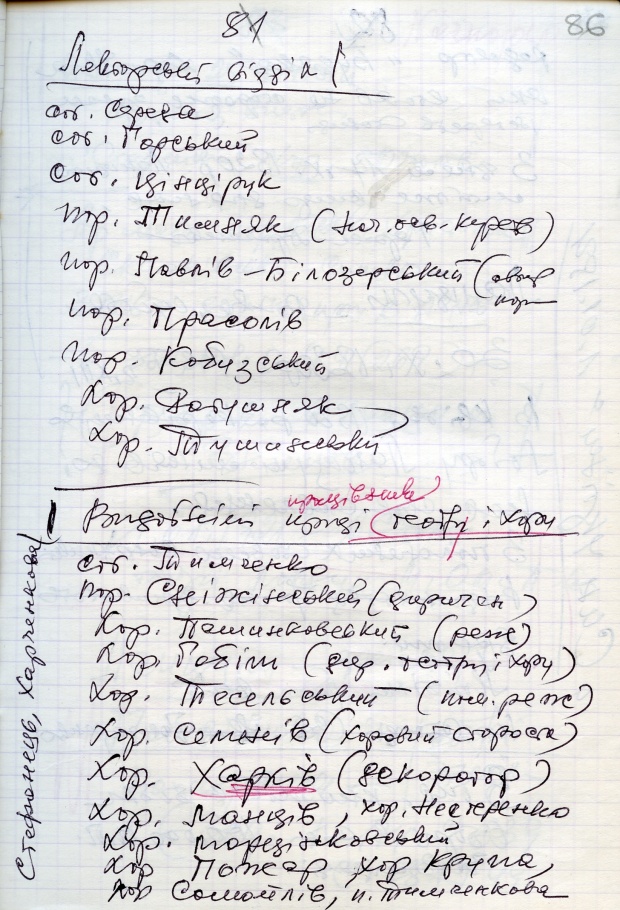 81
86
Лекторський відділ
сот. Середа
сот. Горський
сот. Ціндірук
пор. Тимняк (нач. осв. курсів)
пор. Павлів – Білозерський
пор. Прасолів
пор. Кобизський
Хор. Ватушняк
Хор. Тушинський
працівників
Видовбній праці театру і хору
сот. Тимченко
пор. Сніжинський (диригент)
Хор. Пашинковський (реж)
Хор. Гобіли (дир. театру і хору)
Хор. Тесельський (пом. реж)
Хор. Семків (хоровий староста)
Хор. Харків (декоратор)
Хор. Манців, хор. Нестеренко
Хор. Марцінковський
Хор Пожар, хор Крупа,
Хор Самойлів, п. Тимченкова
Стефанець, Харченкова